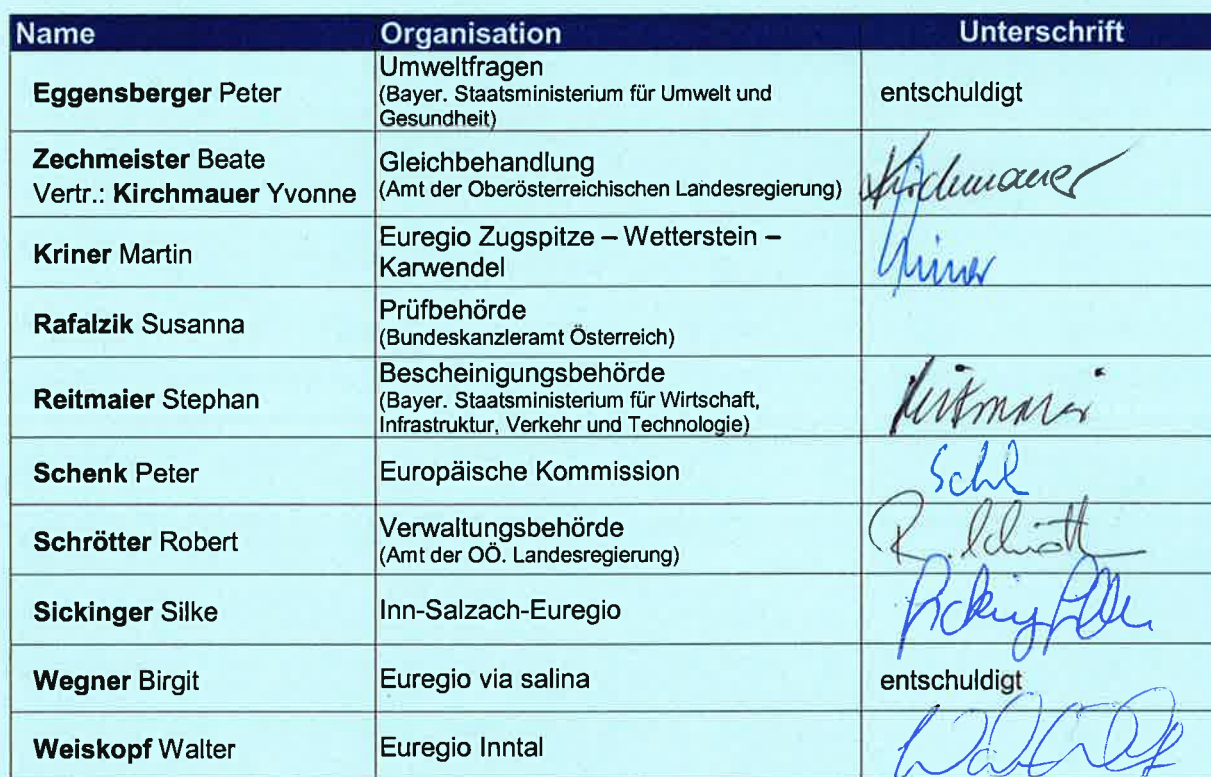 Name Organisation Unterschrift
Eggensberger Peter
Umweltfragen
(Bayer. Staatsministerium für Umwelt und
Gesundheit)
entschuldigt
Zechmeister Beate
Vertr.: Kirchmauer Yvonne
Gleichbehandlung
(Amt der Oberösterreichischen Landesregierung)
Kirchmauer
Kriner Martin
Euregio Zugspitze – Wetterstein –
Karwendel
Kriner
Rafalzik Susanna
Prüfbehörde
(Bundeskanzleramt Österreich)
Reitmaier Stephan
Bescheinigungsbehörde
(Bayer. Staatsministerium für Wirtschaft,
Infrastruktur, Verkehr und Technologie)
Reitmaier
Schenk Peter
Europäische Kommission
Schrötter Robert
Verwaltungsbehörde
(Amt der OÖ. Landesregierung)
R. Schrött
Sickinger Silke
Inn-Salzach-Euregio
Wegner Birgit
Euregio via salina
entschuldigt
Weiskopf Walter
Euregio Inntal